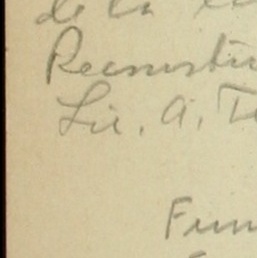 de la
Reconstru
Lic. A. T
Fun